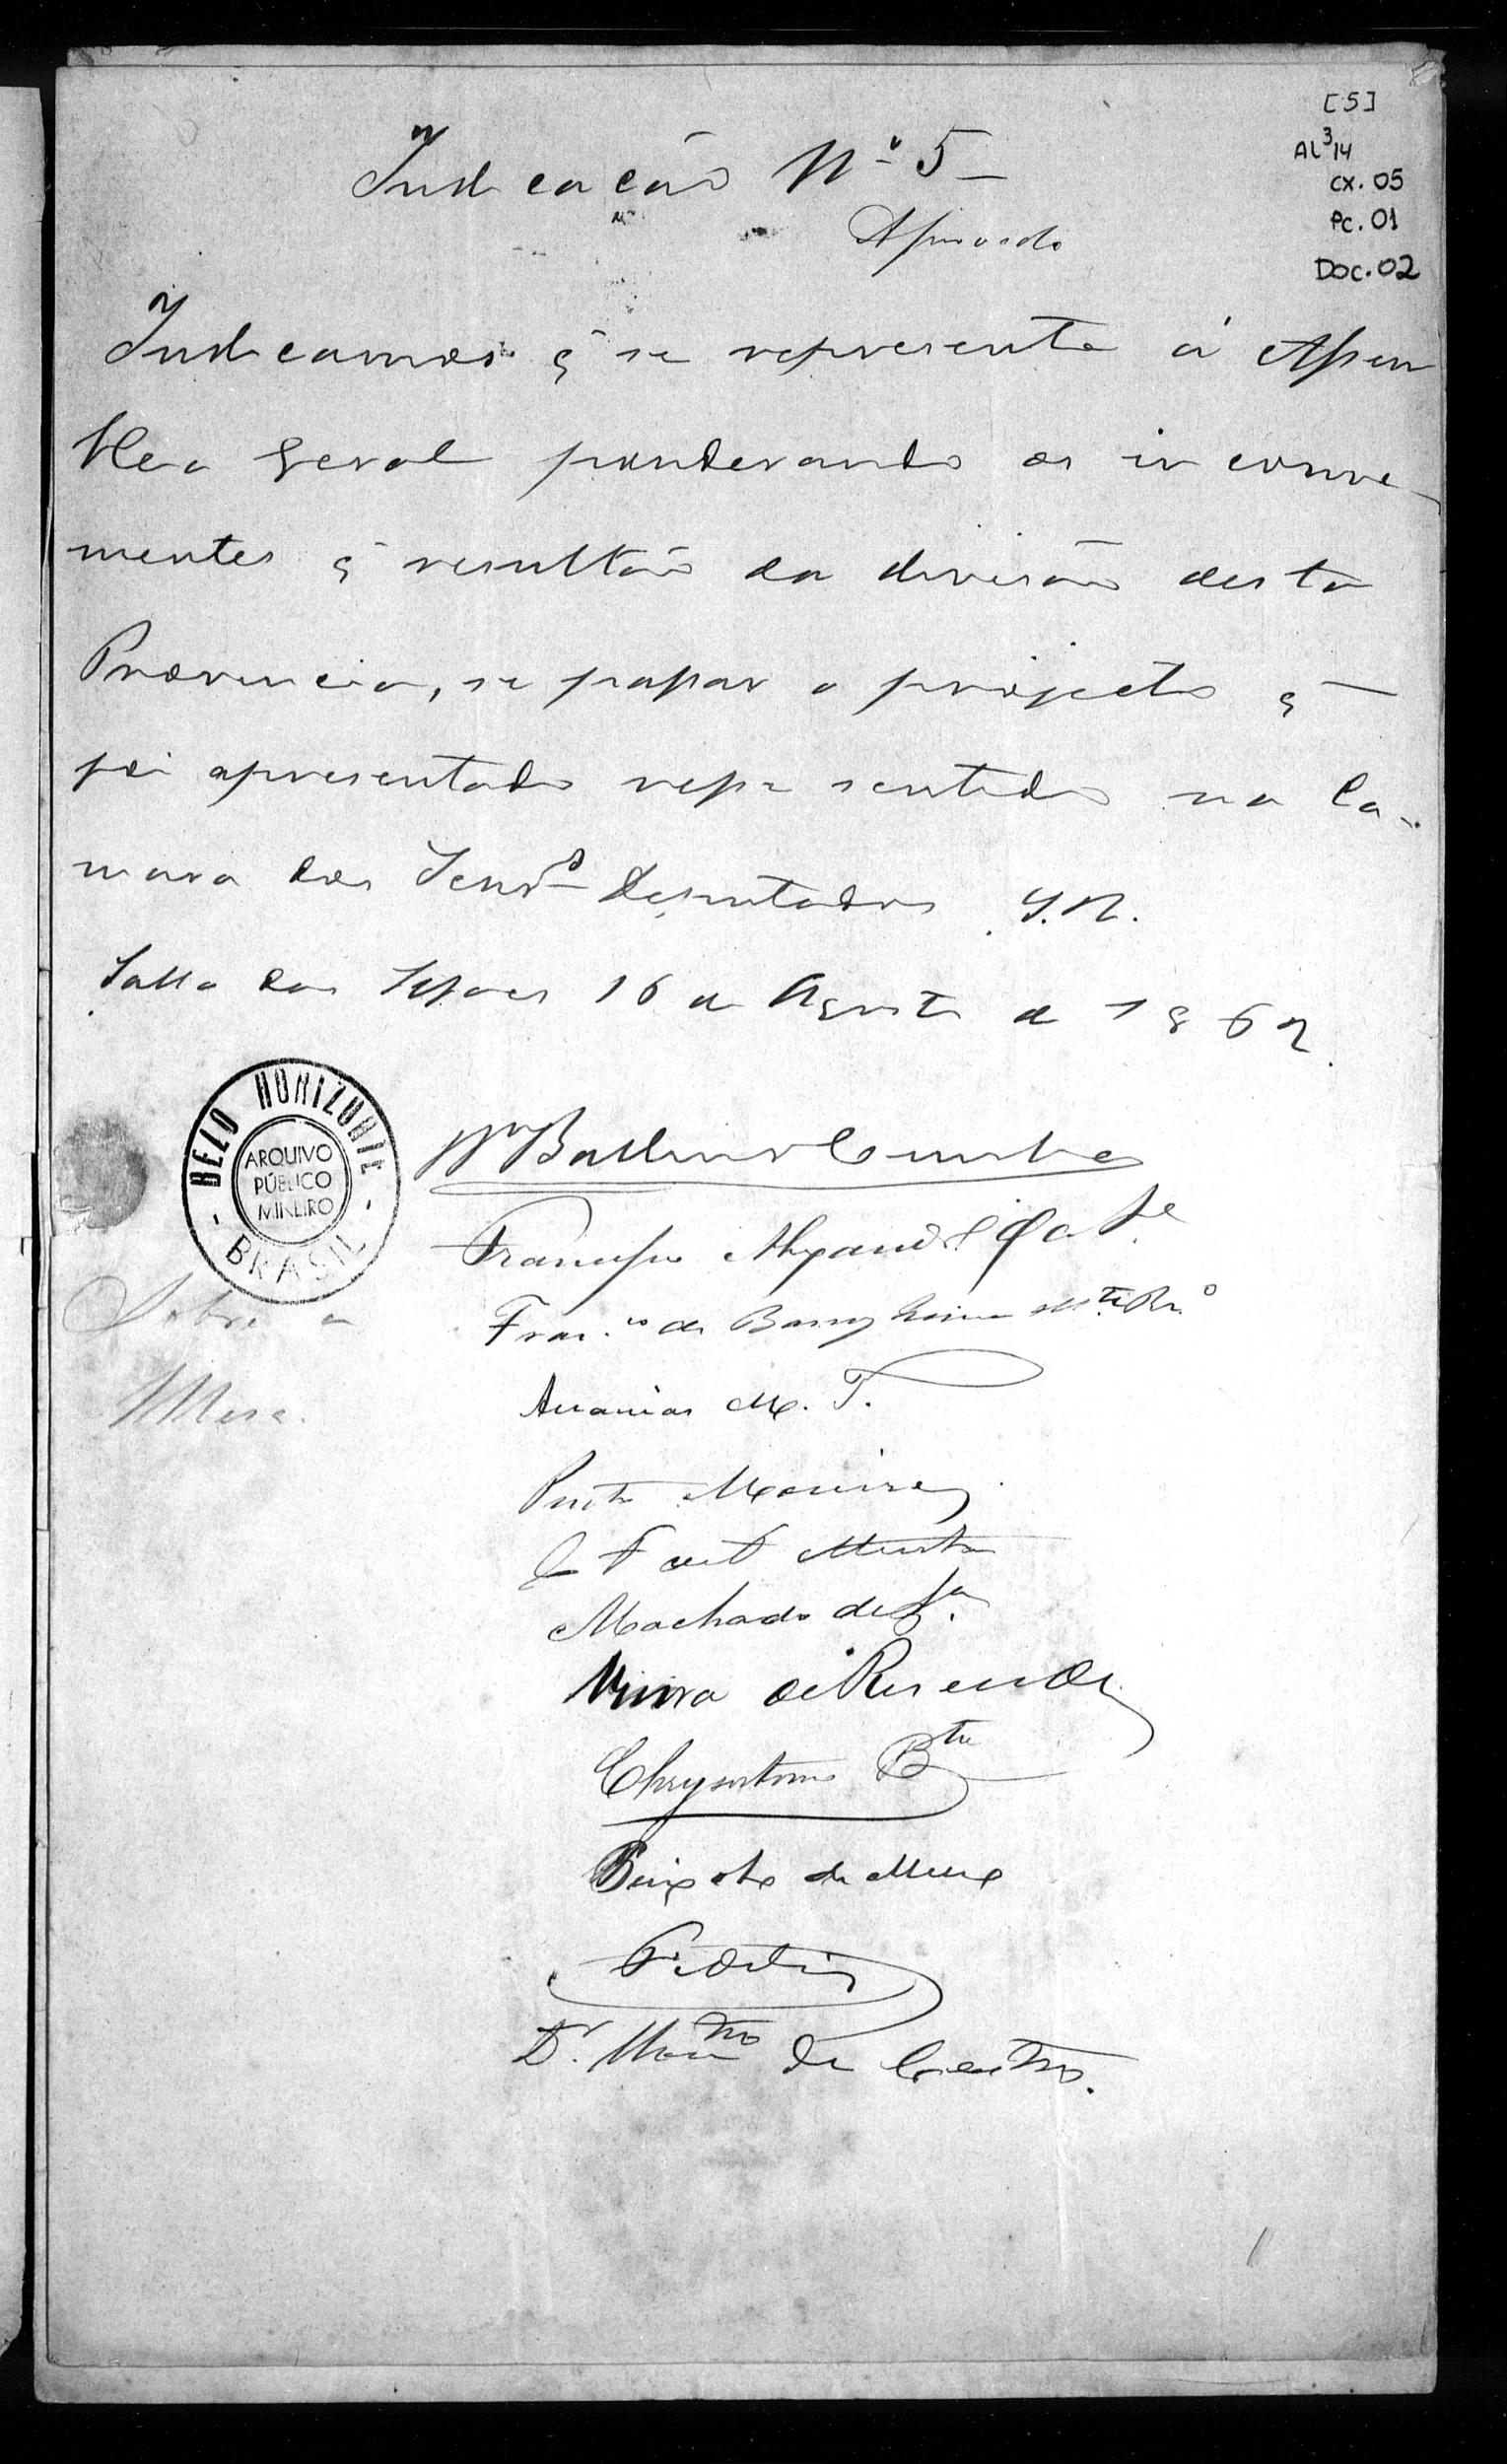 [5]
AL³14
cx. 05
Pc. 01
Doc. 02
Indicação Nº 5
Aprovado
Indicamos q̃ se represente á Assem
blea Geral ponderando os inconve-
nientes q̃ resultão da divisão desta
Provincia, se passar o projecto q̃
foi apresentado nesse sentido na Ca-
mara dos Senr.s Deputados. S.R.
Salla das Sessões 16 de Agosto de 1862.
BELO HORIZONTE
ARQUIVO
PÚBLICO
MINEIRO
- BRASIL -
Cunha
Francisco
Fran.co de
Sobre a
Mesa.
Ananias M. T.
Murta
Machado de
Vieira de Resende
Chrysostomo
Peixoto de
Fidelis
Dr. de Castro.